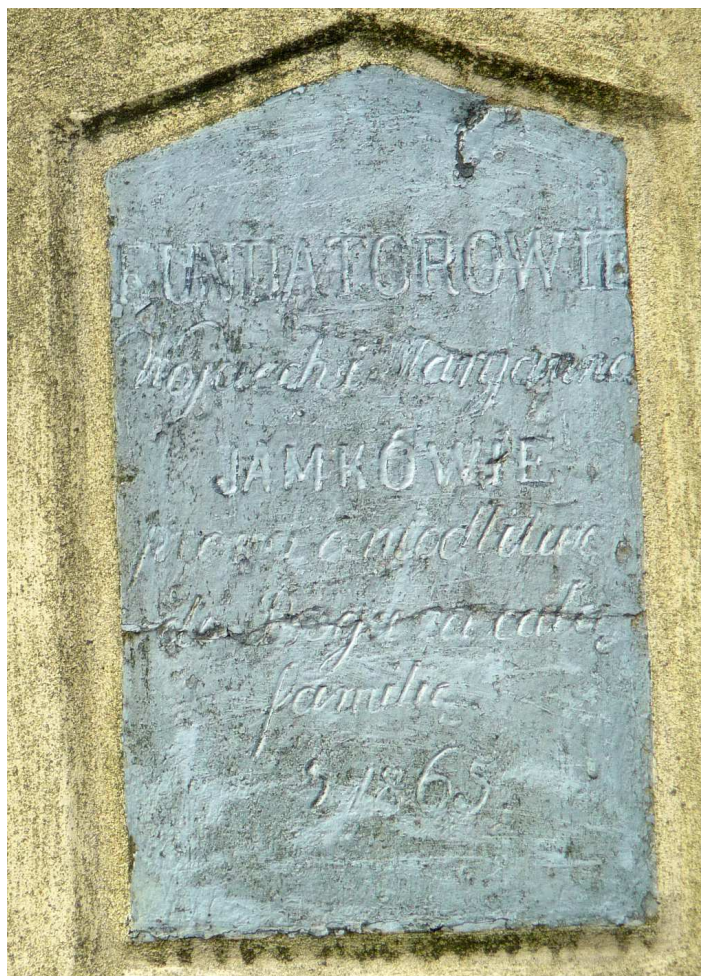 FUNDATOROWIE
Wojciech i Maryanna
JAMKÓWIE
proszą o modlitwę
do Boga za całą
familię
r 1865